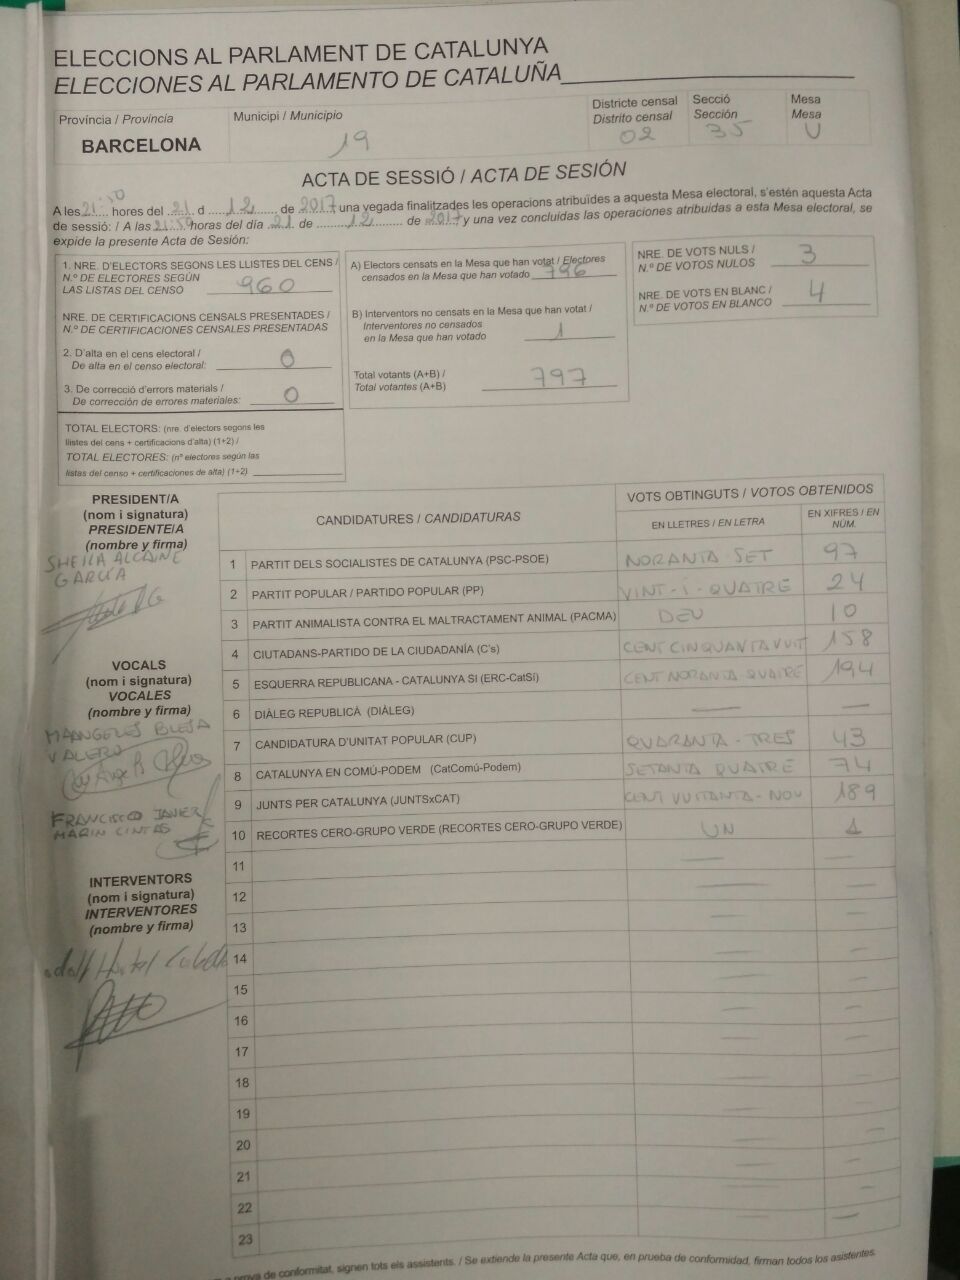 ELECCIONS AL PARLAMENT DE CATALUNYA
ELECCIONES AL PARLAMENTO DE CATALUÑA
Província / Provincia
BARCELONA
Municipi / Municipio
19
Districte censal
Distrito censal
02
Secció
Sección
35
Mesa
Mesa
U
ACTA DE SESSIÓ / ACTA DE SESIÓN
A les 21:50 hores del 21 d 12 de 2017 una vegada finalitzades les operacions atribuïdes a aquesta Mesa electoral, s'estén aquesta Acta
de sessió: / A las 21:50 horas del día 21 de 12 de 2017 y una vez concluidas las operaciones atribuidas a esta Mesa electoral, se
expide la presente Acta de Sesión:
1. NRE. D'ELECTORS SEGONS LES LLISTES DEL CENS /
N.º DE ELECTORES SEGÚN
LAS LISTAS DEL CENSO 960
NRE. DE CERTIFICACIONS CENSALS PRESENTADES /
N.º DE CERTIFICACIONES CENSALES PRESENTADAS
2. D'alta en el cens electoral /
De alta en el censo electoral: 0
3. De correcció d'errors materials /
De corrección de errores materiales: 0
TOTAL ELECTORS: (nre. d'electors segons les
llistes del cens + certificacions d'alta) (1+2) /
TOTAL ELECTORES: (nº electores según las
listas del censo + certificaciones de alta) (1+2)
A) Electors censats en la Mesa que han votat / Electores
censados en la Mesa que han votado 796
B) Interventors no censats en la Mesa que han votat /
Interventores no censados
en la Mesa que han votado 1
Total votants (A+B) /
Total votantes (A+B) 797
NRE. DE VOTS NULS /
N.º DE VOTOS NULOS 3
NRE. DE VOTS EN BLANC /
N.º DE VOTOS EN BLANCO 4
PRESIDENT/A
(nom i signatura)
PRESIDENTE/A
(nombre y firma)
SHEILA ALCAINE
GARCÍA
VOCALS
(nom i signatura)
VOCALES
(nombre y firma)
MªANGELES BLEJA
VALERO
FRANCISCO JAVIER
MARIN CINTAS
INTERVENTORS
(nom i signatura)
INTERVENTORES
(nombre y firma)
CANDIDATURES / CANDIDATURAS
VOTS OBTINGUTS / VOTOS OBTENIDOS
EN LLETRES / EN LETRA
EN XIFRES / EN
NÚM.
1 PARTIT DELS SOCIALISTES DE CATALUNYA (PSC-PSOE) NORANTA SET 97
2 PARTIT POPULAR / PARTIDO POPULAR (PP) VINT-I-QUATRE 24
3 PARTIT ANIMALISTA CONTRA EL MALTRACTAMENT ANIMAL (PACMA) DEU 10
4 CIUTADANS-PARTIDO DE LA CIUDADANÍA (C's) CENT CINQUANTA VUIT 158
5 ESQUERRA REPUBLICANA - CATALUNYA SÍ (ERC-CatSí) CENT NORANTA QUATRE 194
6 DIÀLEG REPUBLICÀ (DIÀLEG) — —
7 CANDIDATURA D'UNITAT POPULAR (CUP) QUARANTA-TRES 43
8 CATALUNYA EN COMÚ-PODEM (CatComú-Podem) SETANTA QUATRE 74
9 JUNTS PER CATALUNYA (JUNTSxCAT) CENT VUITANTA-NOU 189
10 RECORTES CERO-GRUPO VERDE (RECORTES CERO-GRUPO VERDE) UN 1
11 — —
12 — —
13 — —
14 — —
15 — —
16 — —
17 — —
18 — —
19 — —
20 — —
21 — —
22 — —
23 — —
prova de conformitat, signen tots els assistents. / Se extiende la presente Acta que, en prueba de conformidad, firman todos los asistentes.